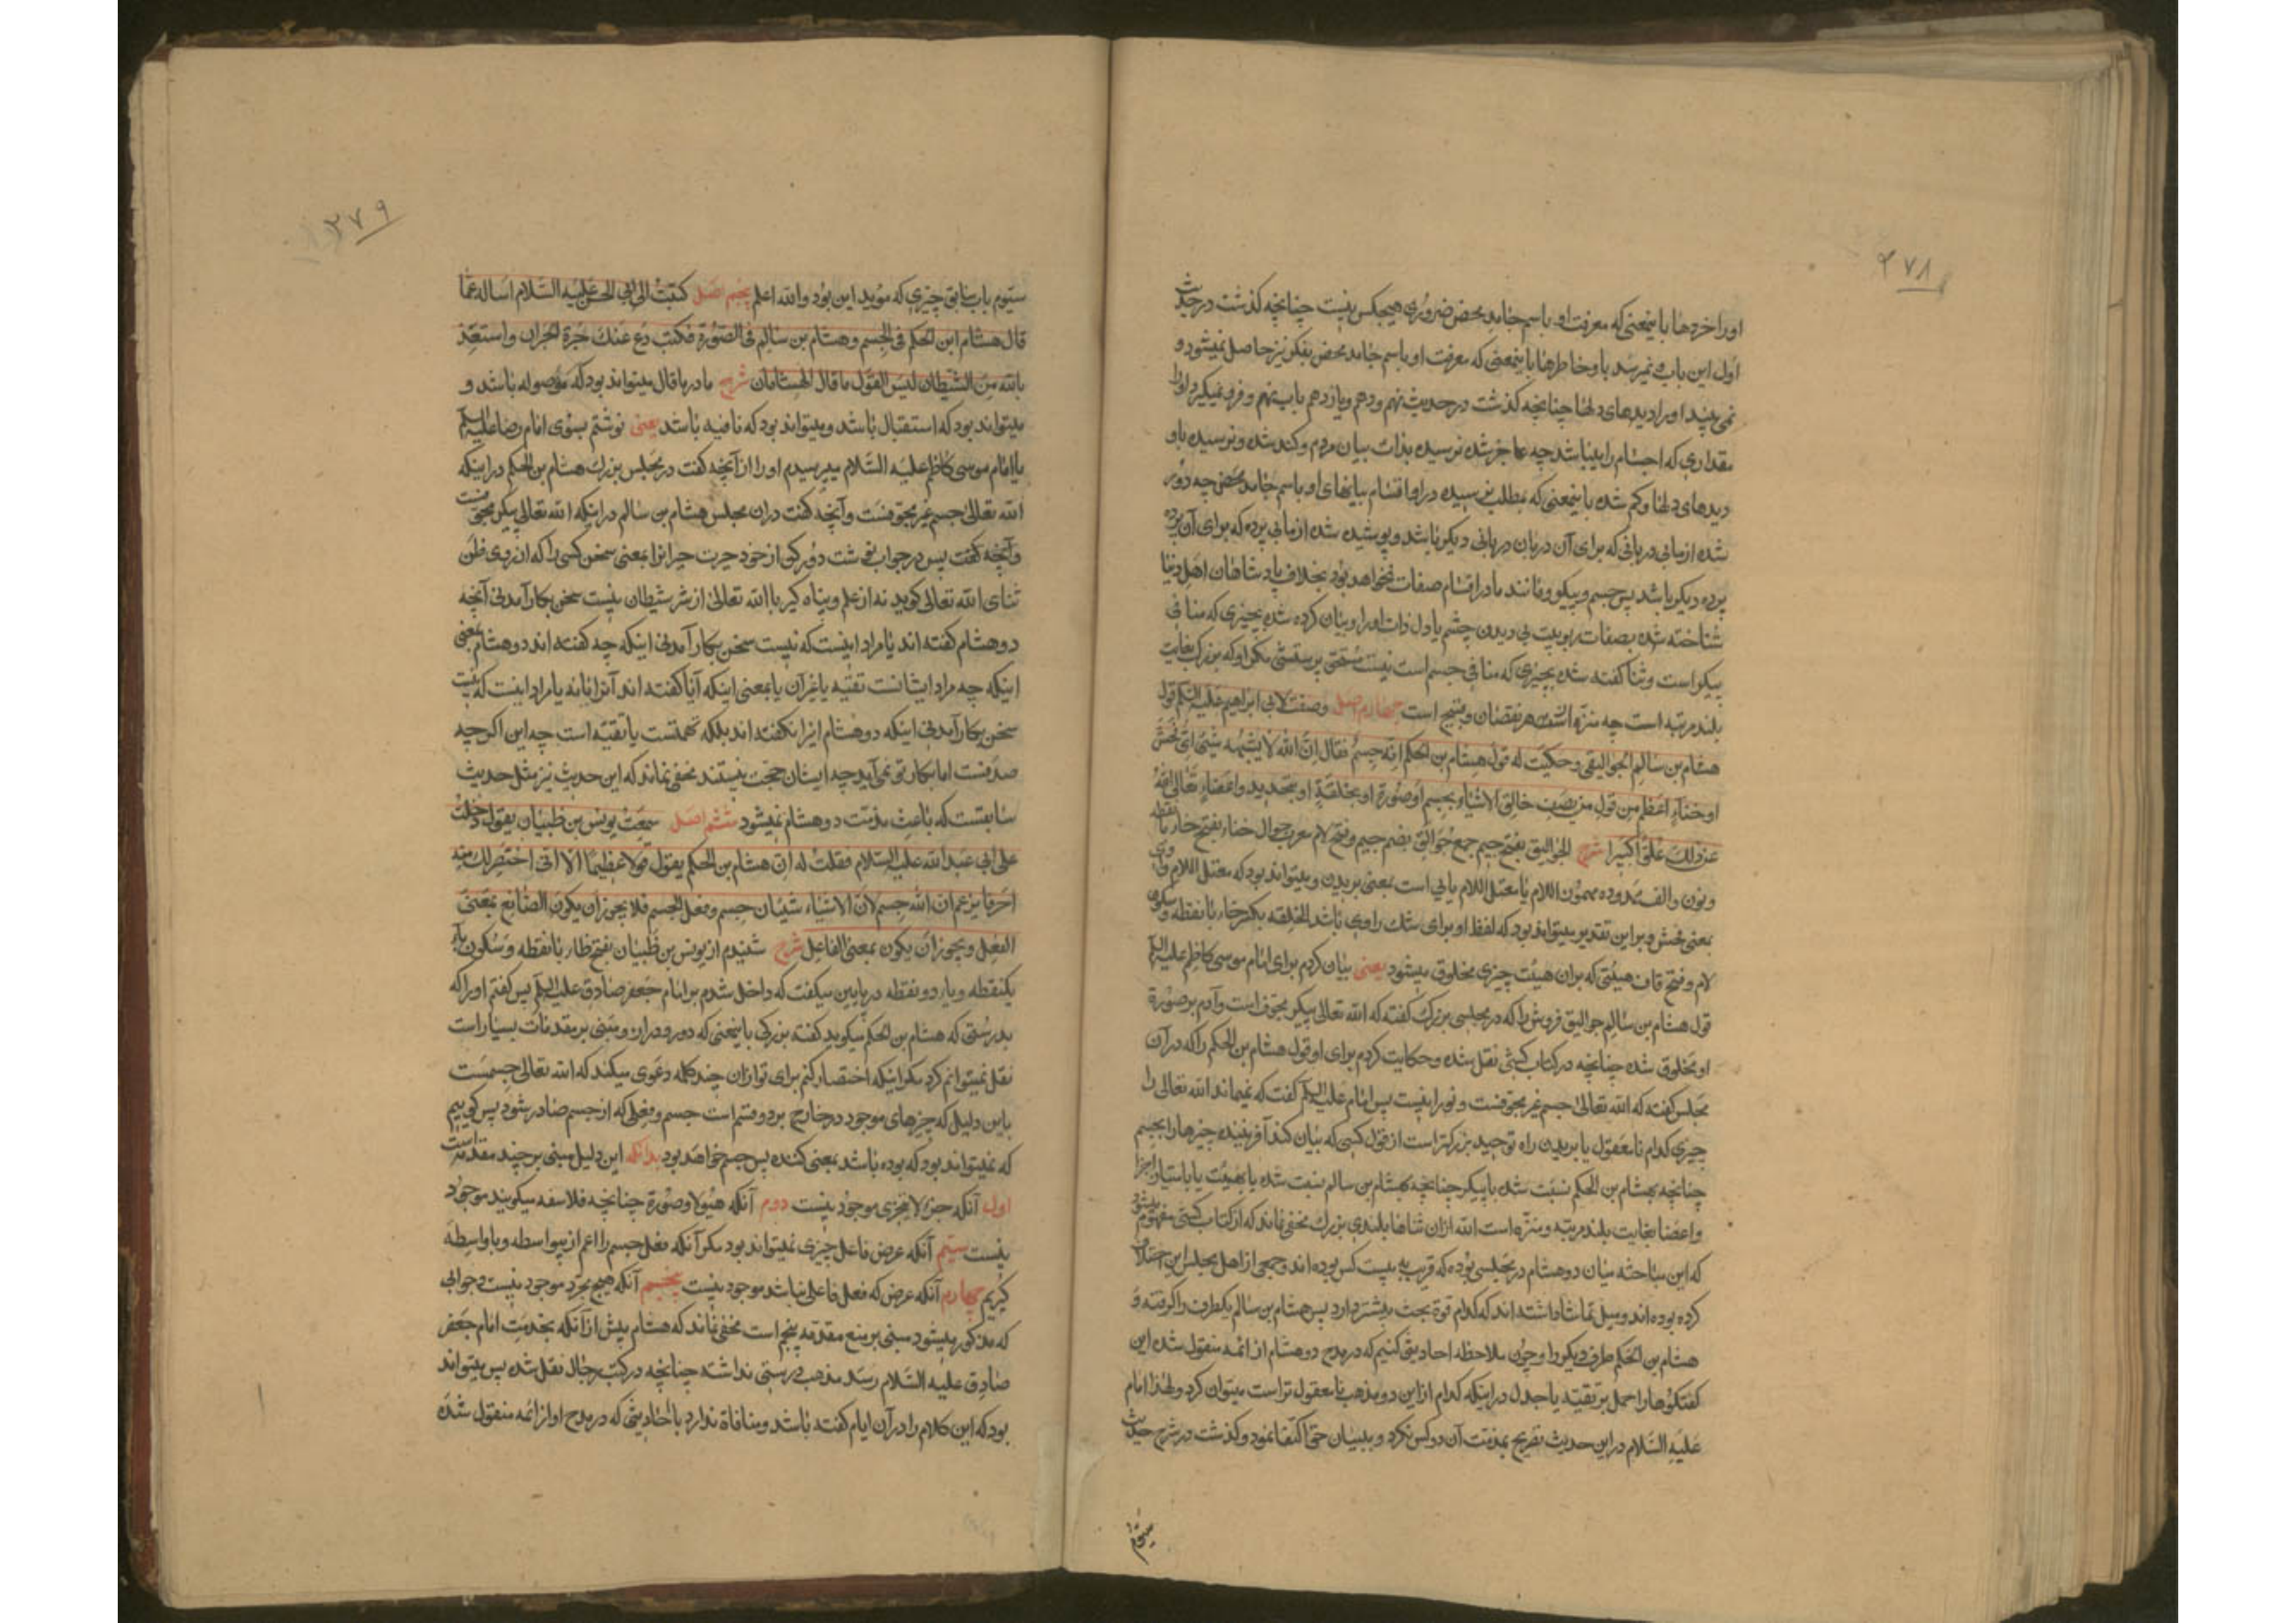 ۲۷۸
اورا خردها باینمعنی که معرفت او باسم جامد محض ضروری هیچکس نیست چنانچه گذشت در حدیث
اول این باب و نمیرسد باو خاطرها باینمعنی که معرفت او باسم جامد محض بفکر نیز حاصل نمیشود و
نمی بیند او را دیدهای دلها چنانچه کذشت در حدیث نهم و دهم و یازدهم باب نهم و فرو نمیکیرد او را
مقداری که اجسام را میباشد چه عاجز شده نرسیده بذات بیان مردم و کند شده و نرسیده باو
دیدهای دلها و کم شده باینمعنی که بمطلب نرسیده در او اقسام بیانهای او باسم جامد محض چه دور
شده ازمابی دربانی که برای آن دربان دربانی دیکر باشد و پوشیده شده ازمابی پرده که برای آن پرده
پرده دیکر باشد پس جسم و پیکر و مانند ما در اقسام صفات نخواهد بود بخلاف پادشاهان اهل دنیا
شناخته شده بصفات ربوبیت بی دیدن چشم یا دل ذات او را و بیان کرده شده بچیزی که منافی
پیکر است و ثنا کفته شده بچیزی که منافی جسم است نیست مستحق پرستش مکر او که بزرک بغایت
بلند مرتبه است چه منزه است از هر نقصان و قبیح است چهارم اصل وصفت لابی ابراهیم علیه السلم قول
هشام بن سالم الجوالیقی و حکیت له قول هشام بن الحکم انه جسم فقال ان الله لا یشبهه شیئ ای فحش
او خناء اعظم من قول من یصف خالق الاشیاء بجسم او صورة او بخلقة او بتحدید و اعضاء تعالی الله
عن ذلک علوا کبیرا شرح الجوالیق بفتح جیم جمع جوالق بضم جیم و فتح لام معرب جوال خناء بفتح خاء بانقطه
و نون و الف ممدوده مهموز اللام یا معتل اللام یایی است بمعنی بریدن و میتواند بود که معتل اللام واوی
بمعنی فحش و بر این تقدیر میتواند بود که لفظ او برای شک راوی باشد الخلقه بکسر خاء بانقطه و سکون
لام و فتح قاف هیئتی که بران هیئت چیزی مخلوق میشود یعنی بیان کردم برای امام موسی کاظم علیه السلم
قول هشام بن سالم جوالیق فروش را که در مجلسی بزرک کفته که الله تعالی پیکر مجوف است و آدم بر صورة
او مخلوق شده چنانچه در کتاب کشی نقل شده و حکایت کردم برای او قول هشام بن الحکم را که در آن
مجلس کفته که الله تعالی جسم غیر مجوفست و نورانیست پس امام علیه السلم کفت که نمیماند الله تعالی را
چیزی کدام نامعقول یا بریدن راه توحید بزرکتر است از قول کسی که بیان کند آفریننده چیزها را بجسم
چنانچه بهشام بن الحکم نسبت شده یا پیکر چنانچه بهشام بن سالم نسبت شده یا بهیئت یا باستیاز اجزا
و اعضا بغایت بلند مرتبه و منزه است الله ازان ثناها بلندی بزرک مخفی نماند که از کتاب کشی مفهوم میشود
که این مباحثه میان دو هشام در مجلسی بوده که قریب به بیست کس بوده اند و جمعی از اهل مجلس این اختلاف
کرده بوده اند و میل تماشا داشته اند که کدام قوة بحث بیشتر دارد پس هشام بن سالم یکطرف را کرفته و
هشام بن الحکم طرف دیکر را و چون ملاحظه احادیثی کنیم که در مدح دو هشام از ائمه منقول شده این
کفتکوها را حمل بر تقیه یا جدل در اینکه کدام از این دو مذهب نامعقول تر است میتوان کرد و لهذا امام
علیه السلام در این حدیث تصریح بمذمت آن دو کس نکرد و ببیان حق اکتفا نمود و کذشت در شرح حدیث
سیوم
۲۷۹
سیوم باب سابق چیزی که مؤید این بود و الله اعلم پنجم اصل کتبت الی ابی الحسن علیه السلام اساله عما
قال هشام ابن الحکم فی الجسم و هشام بن سالم فی الصورة فکتب دع عنک حیرة الحیران و استعذ
بالله من الشیطان لیس القول ما قال الهشامان شرح ما در ما قال میتواند بود که موصوله باشد و
میتواند بود که استقبال باشد و میتواند بود که نافیه باشد یعنی نوشتم بسوی امام رضا علیه السلم
یا امام موسی کاظم علیه السلام میپرسیدم او را از آنچه کفت در مجلس بزرک هشام بن الحکم در اینکه
الله تعالی جسم غیر مجوفست و آنچه کفت دران مجلس هشام بن سالم در اینکه الله تعالی پیکر مجوفست
و آنچه کفت پس در جواب نوشت دور کن از خود حیرت حیرانرا بمعنی سخن کسی را که از روی ظن
ثنای الله تعالی کوید نه از علم و پناه کیر با الله تعالی از شر شیطان نیست سخن بکار آمدنی آنچه
دو هشام کفته اند یا مراد اینست که نیست سخن بکار آمدنی اینکه چه کفته اند دو هشام یعنی
اینکه چه مراد ایشانست تقیه یا غیر آن یا بمعنی اینکه آیا کفته اند آنرا یا نه یا مراد اینست که نیست
سخن بکار آمدنی اینکه دو هشام اینرا نکفته اند بلکه تهمتست یا تقیه است چه این اکرچه
صدقست اما بکار تو نمی آید چه ایشان حجت نیستند مخفی نماند که این حدیث نیز مثل حدیث
سابقست که باعث مذمت دو هشام نمیشود ششم اصل سمعت یونس بن ظبیان یقول دخلت
علی ابی عبد الله علیه السلام فقلت له ان هشام بن الحکم یقول قولا عظیما الا انی اختصر لک منه
احرفا یزعم ان الله جسم لان الاشیاء شیئان جسم و فعل الجسم فلا یجوز ان یکون الصانع بمعنی
الفعل و یجوز ان یکون بمعنی الفاعل شرح شنیدم از یونس بن ظبیان بفتح ظاء بانقطه و سکون باء
یکنقطه و یاء دو نقطه در پایین میکفت که داخل شدم بر امام جعفر صادق علیه السلم پس کفتم او را که
بدرستی که هشام بن الحکم میکوید کفته بزرکی باینمعنی که دور و دراز و مبنی بر مقدمات بسیار است
نقل نمیتوانم کرد مکر اینکه اختصار کنم برای تو ازان چند کلمه دعوی میکند که الله تعالی جسمست
باین دلیل که چیزهای موجود در خارج بر دو قسم است جسم و فعلی که از جسم صادر شود پس کوییم
که نمیتواند بود که بوده باشد بمعنی کننده پس جسم خواهد بود بدانکه این دلیل مبنی بر چند مقدمه است
اول آنکه جزء لا یتجزی موجود نیست دوم آنکه هیولا و صورة چنانچه فلاسفه میکویند موجود
نیست سیم آنکه عرض فاعل چیزی نمیتواند بود مکر آنکه فعل جسم را اعم از بیواسطه و باواسطه
کیریم چهارم آنکه عرض که فعل فاعلی نباشد موجود نیست پنجم آنکه هیچ مجرد موجود نیست و جوابی
که مذکور میشود مبنی بر منع مقدمه پنجم است مخفی نماند که هشام پیش از آنکه بخدمت امام جعفر
صادق علیه السلام رسد مذهب درستی نداشته چنانچه در کتب رجال نقل شده پس میتواند
بود که این کلام را در آن ایام کفته باشد و منافاة ندارد با احادیثی که در مدح او از ائمه منقول شده